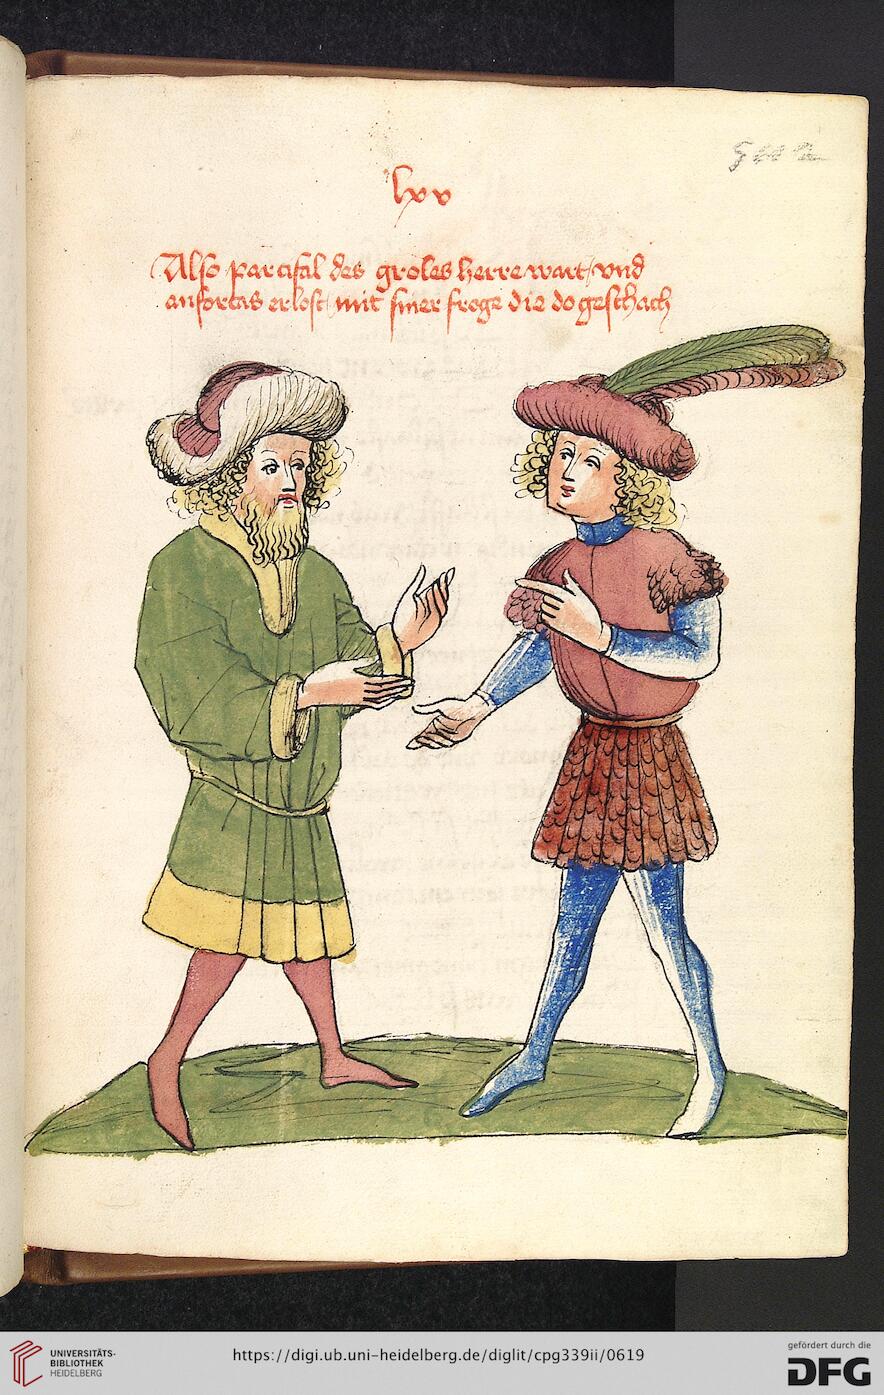 lxv
Also parcifal des groles herre wart / vnd
anfortas erlost / mit siner froge die do geschach
UNIVERSITÄTS-
BIBLIOTHEK
HEIDELBERG
https://digi.ub.uni-heidelberg.de/diglit/cpg339ii/0619
gefördert durch die
DFG